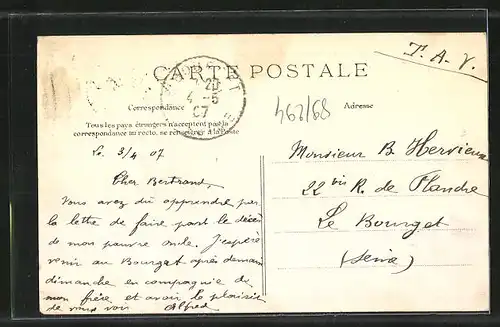 T. A. V.
CARTE POSTALE
20
4 -5
07
Correspondance
Tous les pays étrangers n'acceptent pas la
correspondance au recto, se renseigner à la Poste
Adresse
462/68
3/4 07
Cher Bertrand,
Vous avez dû apprendre par
la lettre de faire part le décès
de mon pauvre oncle. J'espère
venir au Bourget après demain
dimanche en compagnie de
mon frère et avoir le plaisir
de vous voir Alfred
Monsieur B. Hervieux
22 bis R. de Flandre
Le Bourget
(Seine)